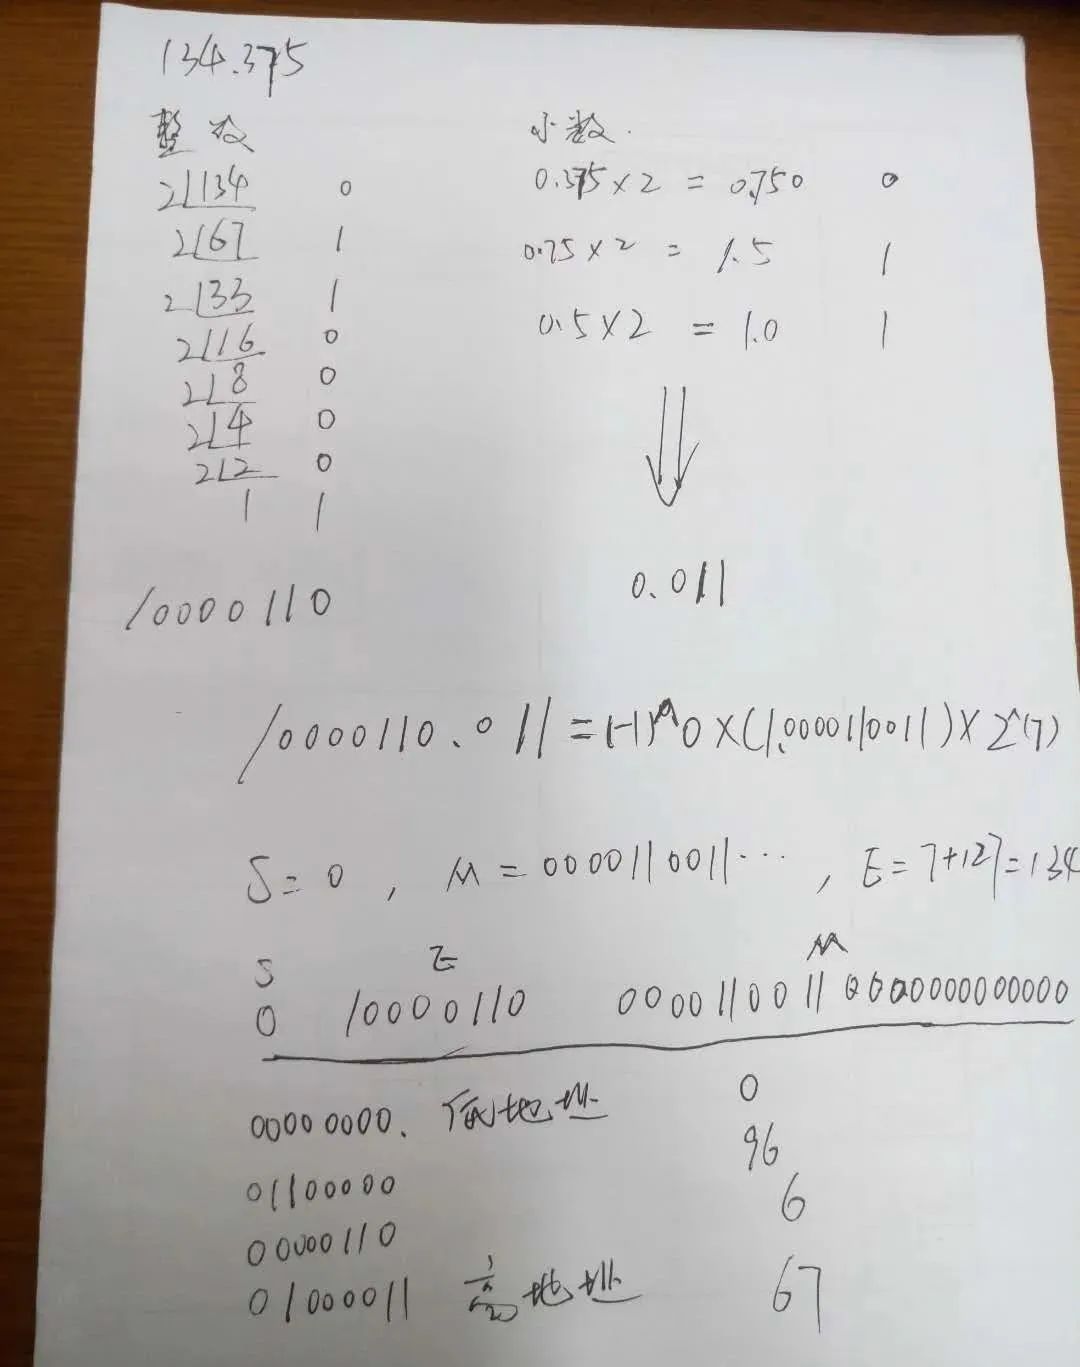 134.375
整数 小数.
2|134 0 0.375×2 = 0.750 0
2|67 1 0.75×2 = 1.5 1
2|33 1 0.5×2 = 1.0 1
2|16 0
2|8 0
2|4 0
2|2 0
1 1
10000110 0.011
10000110.011=(-1)^0×(1.0000110011)×2^(7)
S=0, M=0000110011…, E=7+127=134
S E M
0 10000110 00001100110000000000000
00000000. 低地址 0
01100000 96
00000110 6
01000011 高地址 67